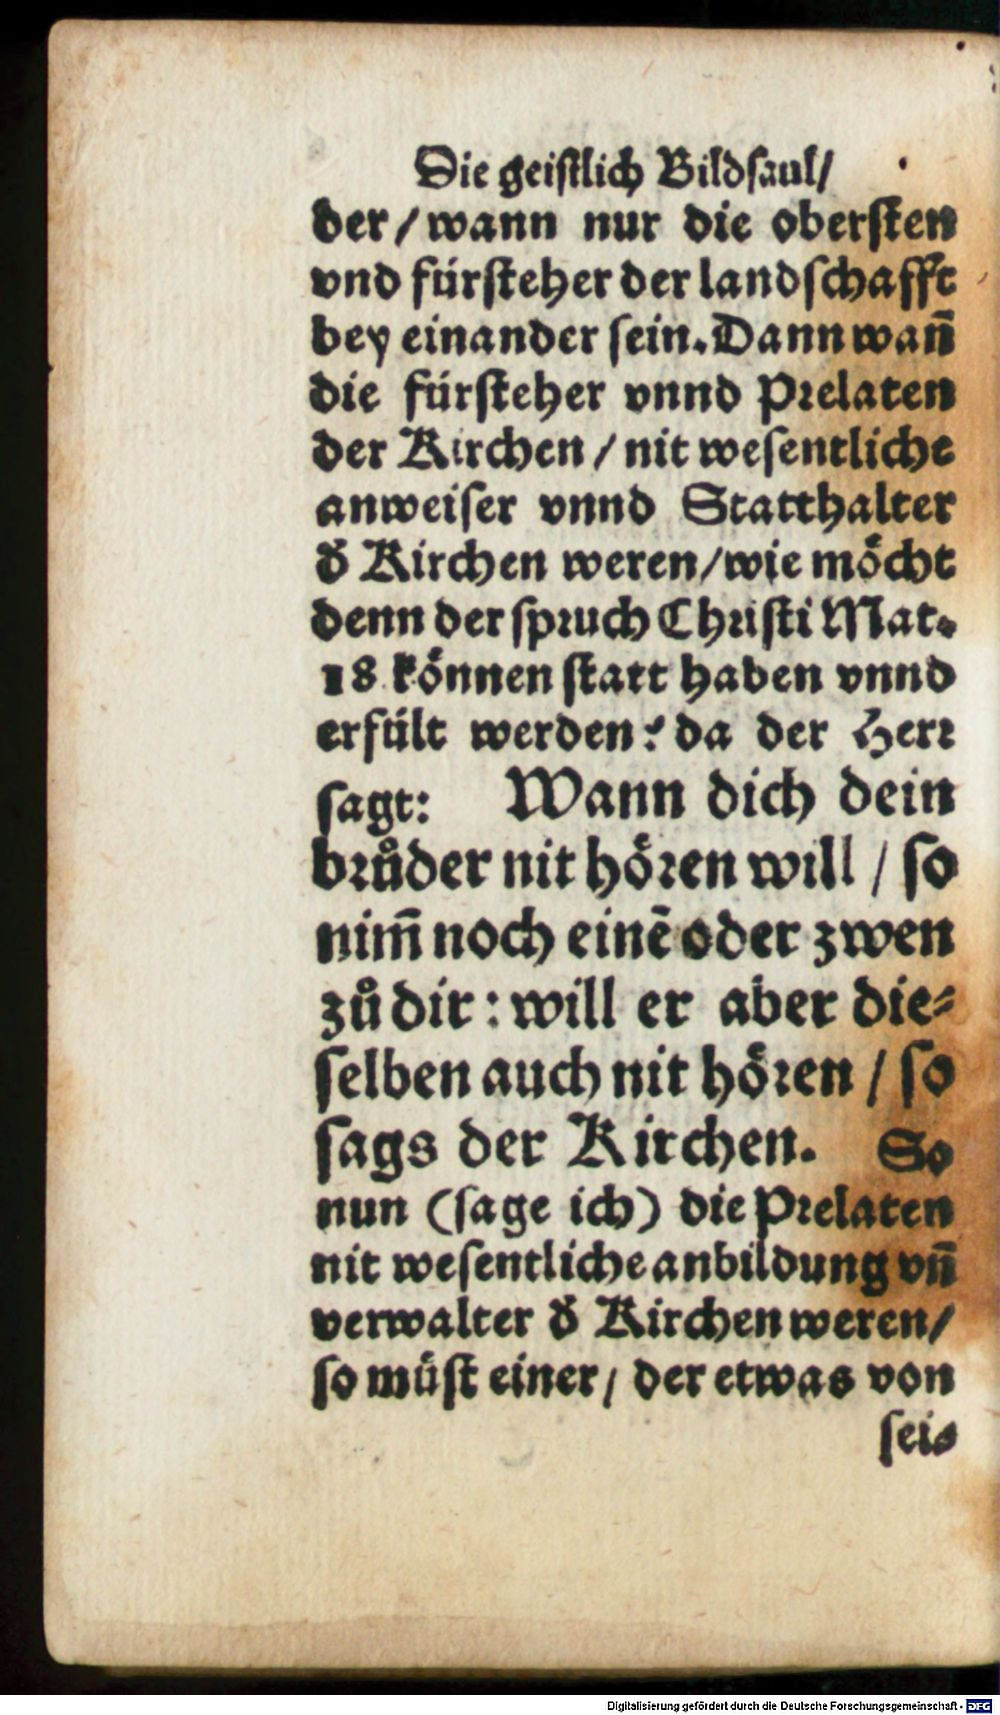 Die geistlich Bildsaul/
der/wann nur die obersten
vnd fürsteher der landschafft
bey einander sein. Dann wañ
die fürsteher vnnd Prelaten
der Kirchen/nit wesentliche
anweiser vnnd Statthalter
d̾ Kirchen weren/wie möcht
denn der spruch Christi Mat.
18 können statt haben vnnd
erfült werden? da der Herr
sagt: Wann dich dein
brůder nit hören will/so
nim̃ noch einē oder zwen
zů dir: will er aber die⸗
selben auch nit hören/so
sags der Kirchen. So
nun (sage ich) die Prelaten
nit wesentliche anbildung vñ
verwalter d̾ Kirchen weren/
so müst einer/der etwas von
sei⸗
Digitalisierung gefördert durch die Deutsche Forschungsgemeinschaft - DFG